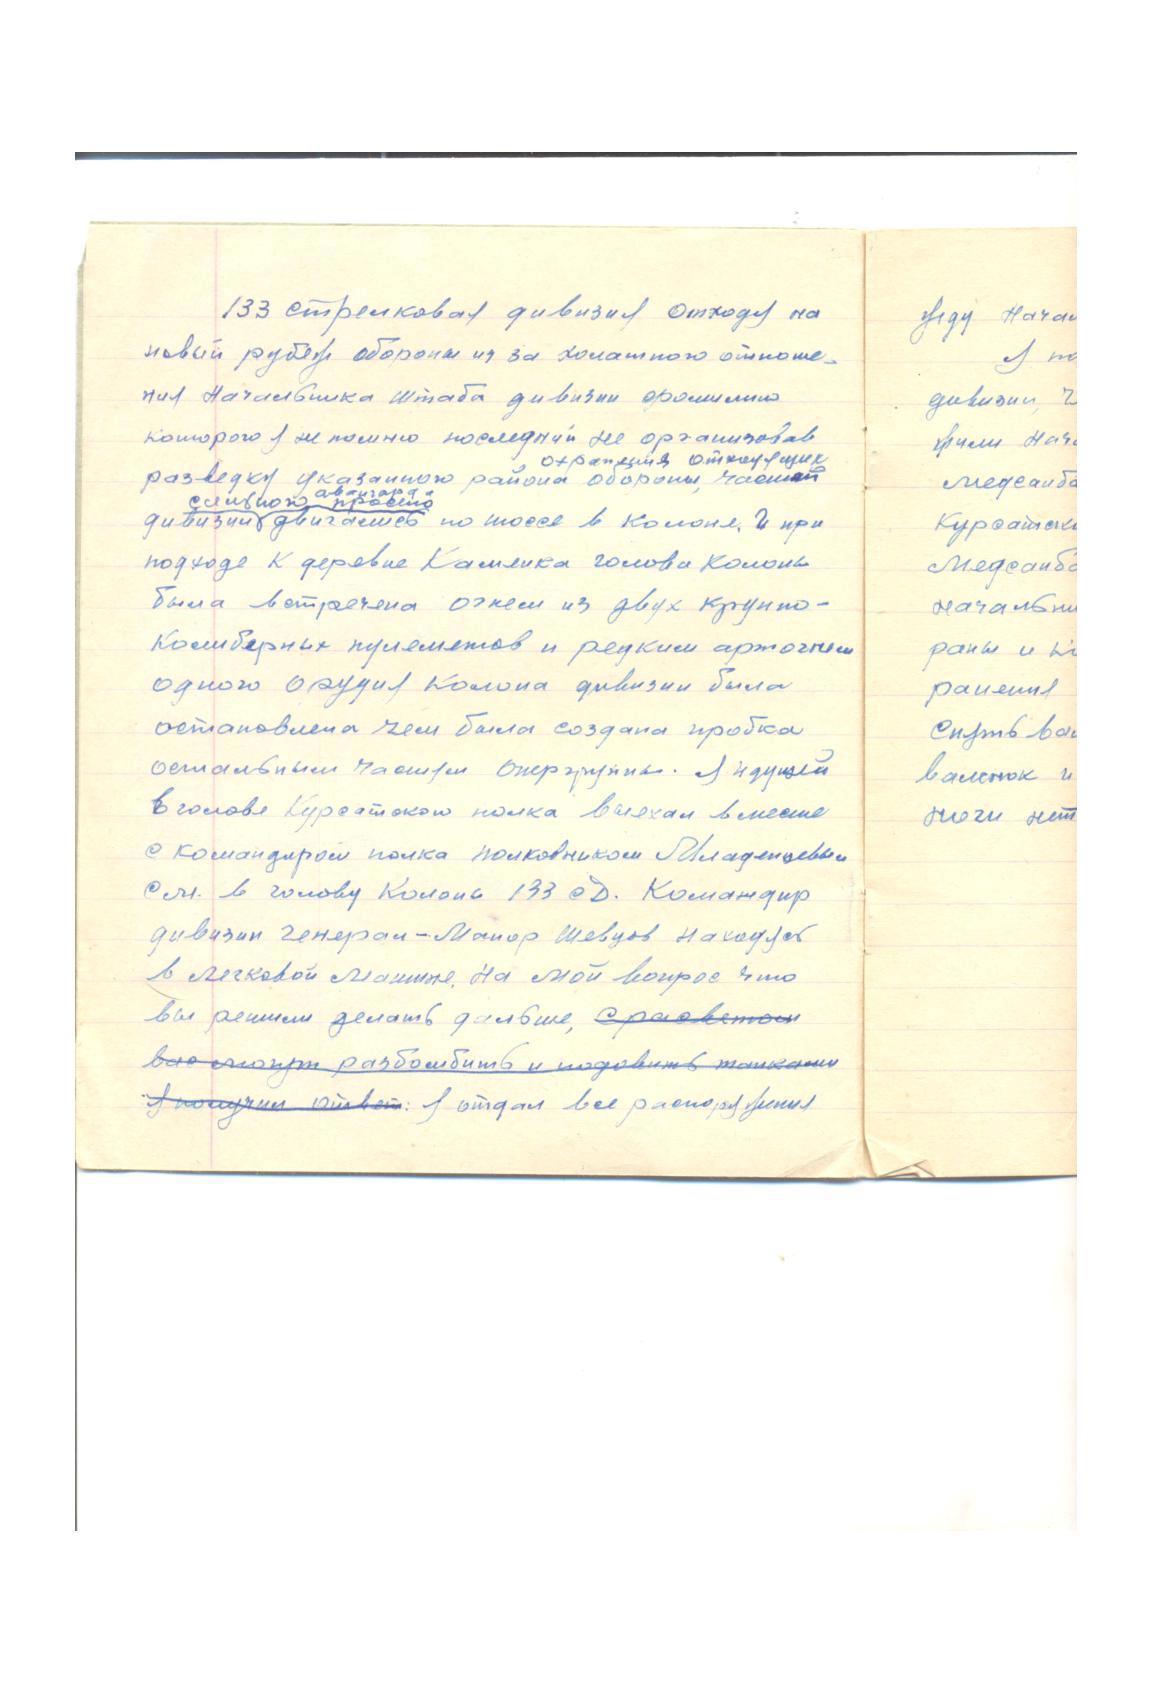 133 стрелковая дивизия отходя на
новый рубеж обороны из за халатного отноше-
ния Начальника штаба дивизии фамилию
которого я не помню последний не организовав
охранения отходящих
разведку указанного района обороны, частей
авангарда
сильного просто
дивизии двигались по шоссе в колоне. И при
подходе к деревне Каменка голова колоны
была встречена огнем из двух крупно-
калиберных пулеметов и редким артогнем
одного орудия колона дивизии была
остановлена чем была создана пробка
остальным частям опергруппы. я идущий
в голове Курсатского полка выехал вместе
с командиром полка полковником Младенцевым
с.и. в голову колоны 133 сД. Командир
дивизии генерал-Маиор Шевцов находясь
в легковой машине. На мой вопрос что
вы решили делать дальше, с расветом
вас могут разбомбить и подавить танками
я получил ответ: я отдал все распоряжения
жду Начал
я по
дивизии,
Нача
Медсанба
Курсатск
Медсанба
начальни
раны и
ранения
Снять ва
валенок и
ноги нет